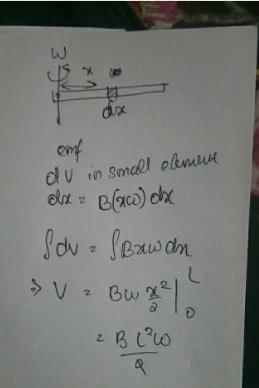 ω
x
dx
emf
dV in small element
dx = B(xω) dx
∫dv = ∫Bxωdx
⇒ V = Bω x²/2 |₀ᴸ
= BL²ω/2